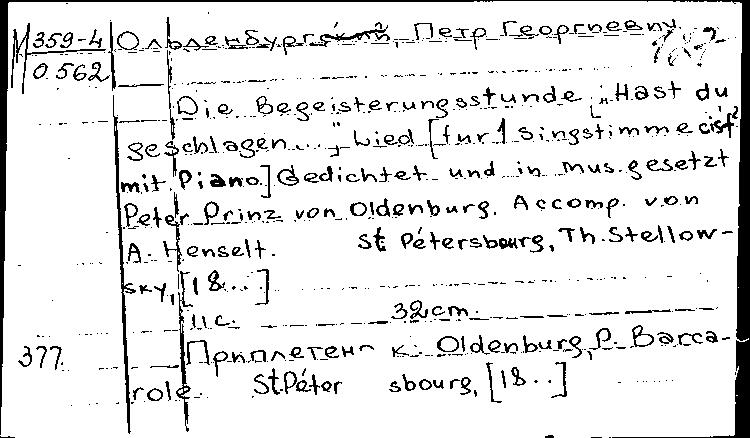 М 359-4 Ольденбургский, Петр Георгиевич
0.562
Die Begeisterungsstunde ; „Hast du
geschlagen...", Lied [für 1 Singstimme cis-f²
mit Piano] Gedichtet und in Mus. gesetzt
Peter Prinz von Oldenburg. Accomp. von
A. Henselt. St Pétersbourg, Th. Stellow-
sky, [18..]
11 с. 32 cm.
377 Приплетен к: Oldenburg, P. Barca-
role St. Péter sbourg, [18..]